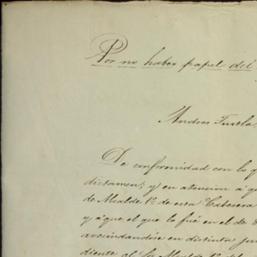 Por no haber papel del
Andres Tuxtla,
De conformidad con lo q
dictamen; y en atencion a q
de Alcalde 1º de esta Cabecera
y á que el que lo fué en el de
avecindándose en distinta ju
diente al Sr Alcalde 1º del